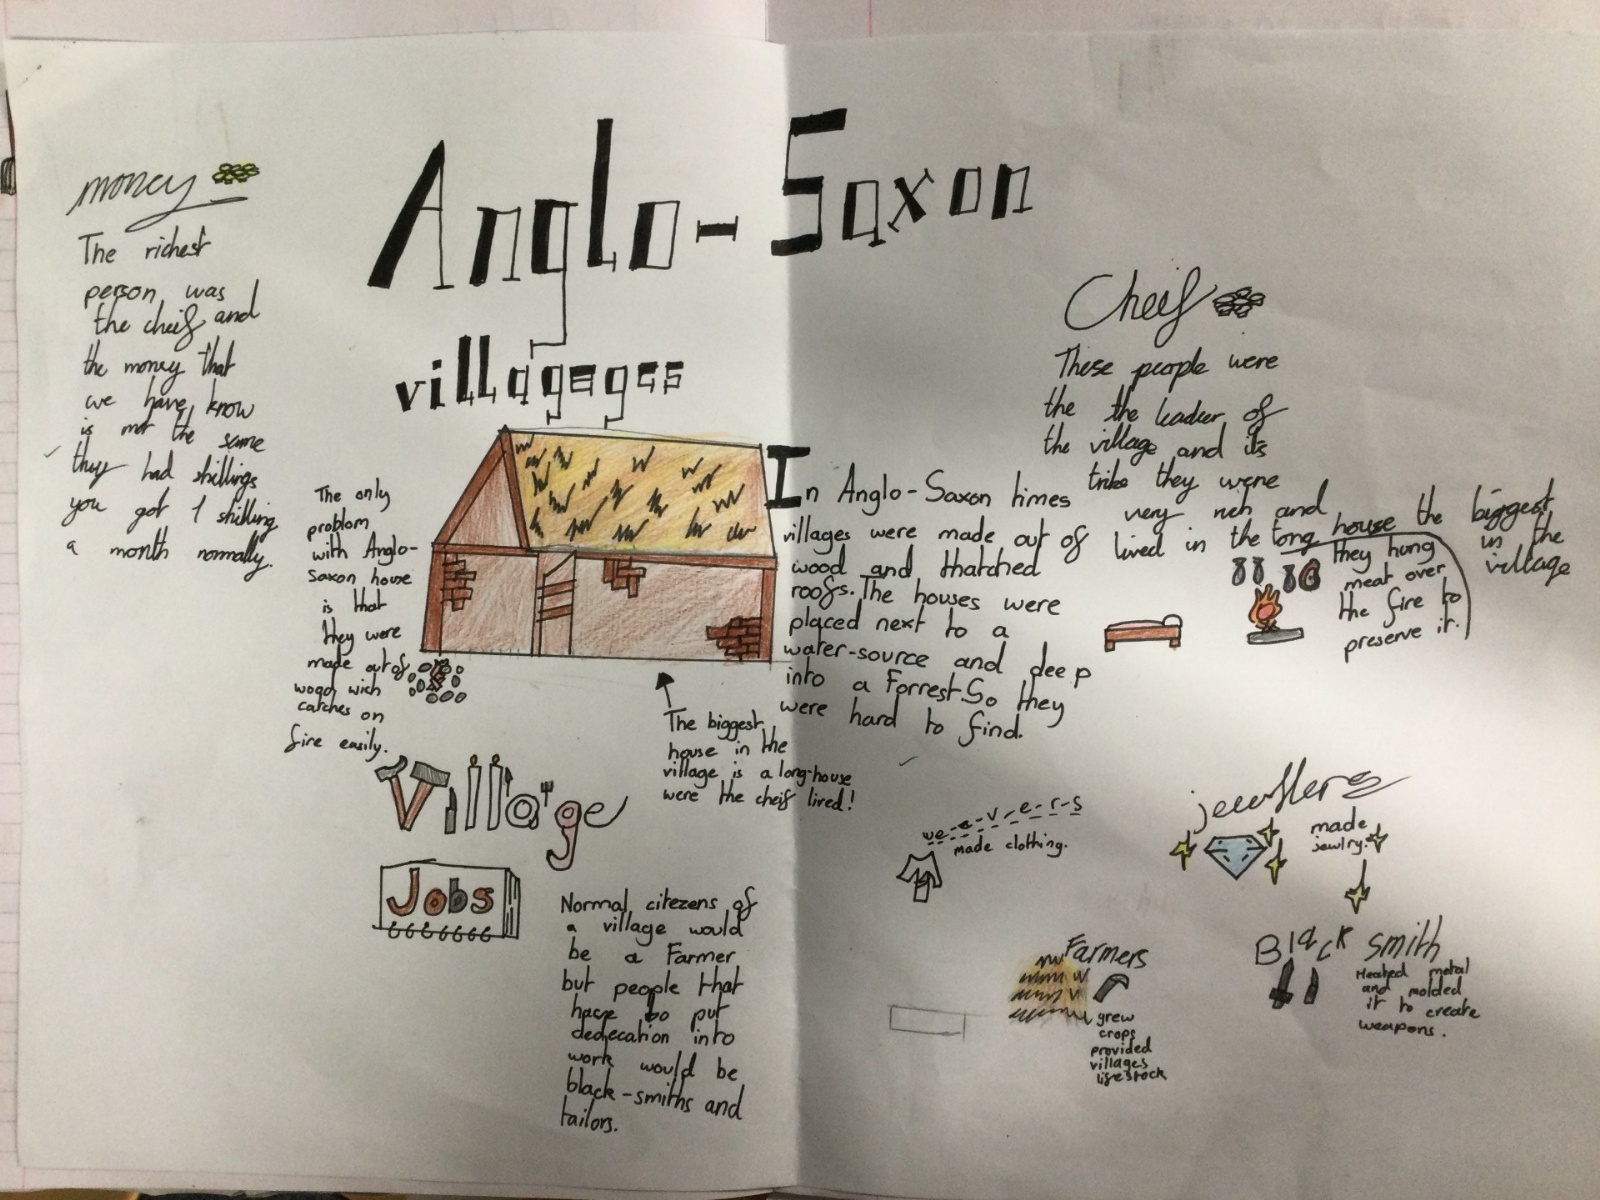 Anglo-Saxon
villagages
money
The richest
person was
the cheif and
the money that
we have know
is not the same
they had shillings
you got 1 shilling
a month normally.
The only
problem
with Anglo-
saxon house
is that
they were
made out of
wood wich
catches on
fire easily.
The biggest
house in the
village is a long-house
were the cheif lived!
In Anglo-Saxon times
villages were made out of
wood and thatched
roofs. The houses were
placed next to a
water-source and deep
into a Forrest. So they
were hard to find.
Cheif
These people were
the the leader of
the village and its
tribe they were
very rich and
lived in the long house the biggest
in the
village
they hung
meat over
the fire to
preserve it.
Village
Jobs
Normal citezens of
a village would
be a Farmer
but people that
have to put
dedecation into
work would be
black-smiths and
tailors.
we-a-v-e-r-s
made clothing.
jewllers
made
jewlry.
Farmers
grew
crops
provided
villages
livestock
Black smith
Heated metal
and molded
it to create
weapons.